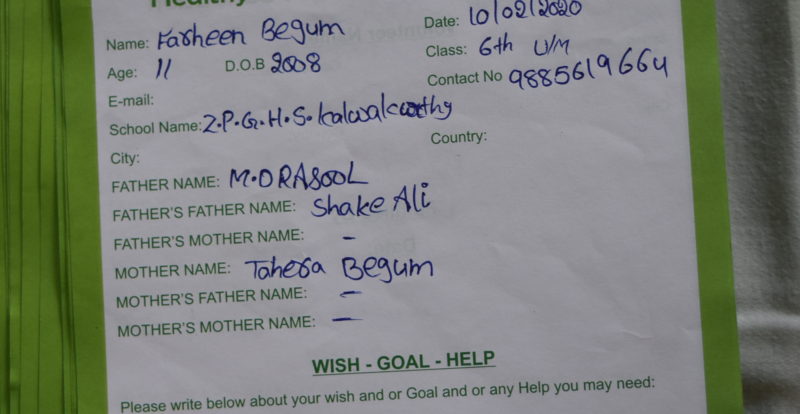 Healthy
Name: Farheen Begum Date: 10/02/2020
Age: 11 D.O.B 2008 Class: 6th U/M
E-mail: Contact No 9885619664
School Name: Z.P.G.H.S. kalwakurthy
City: Country:
FATHER NAME: M.D RASOOL
FATHER'S FATHER NAME: Shake Ali
FATHER'S MOTHER NAME: -
MOTHER NAME: Tahera Begum
MOTHER'S FATHER NAME: -
MOTHER'S MOTHER NAME: -
WISH - GOAL - HELP
Please write below about your wish and or Goal and or any Help you may need: